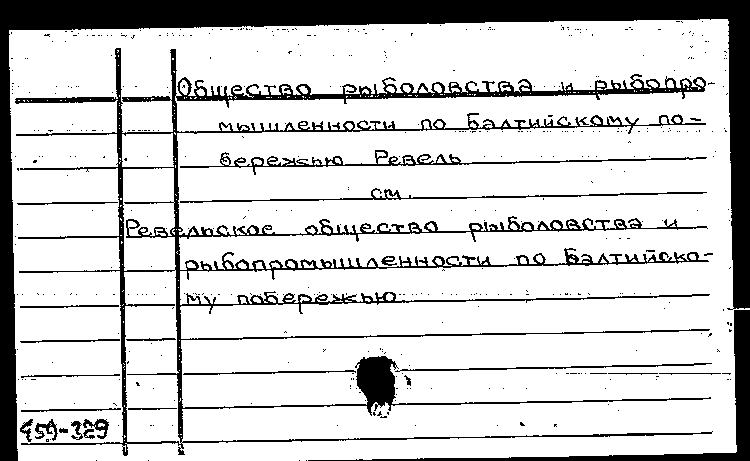 Общество рыболовства и рыбопро-
мышленности по Балтийскому по-
бережью Ревель
см.
Ревельское общество рыболовства и
рыбопромышленности по Балтийско-
му побережью.
459-329